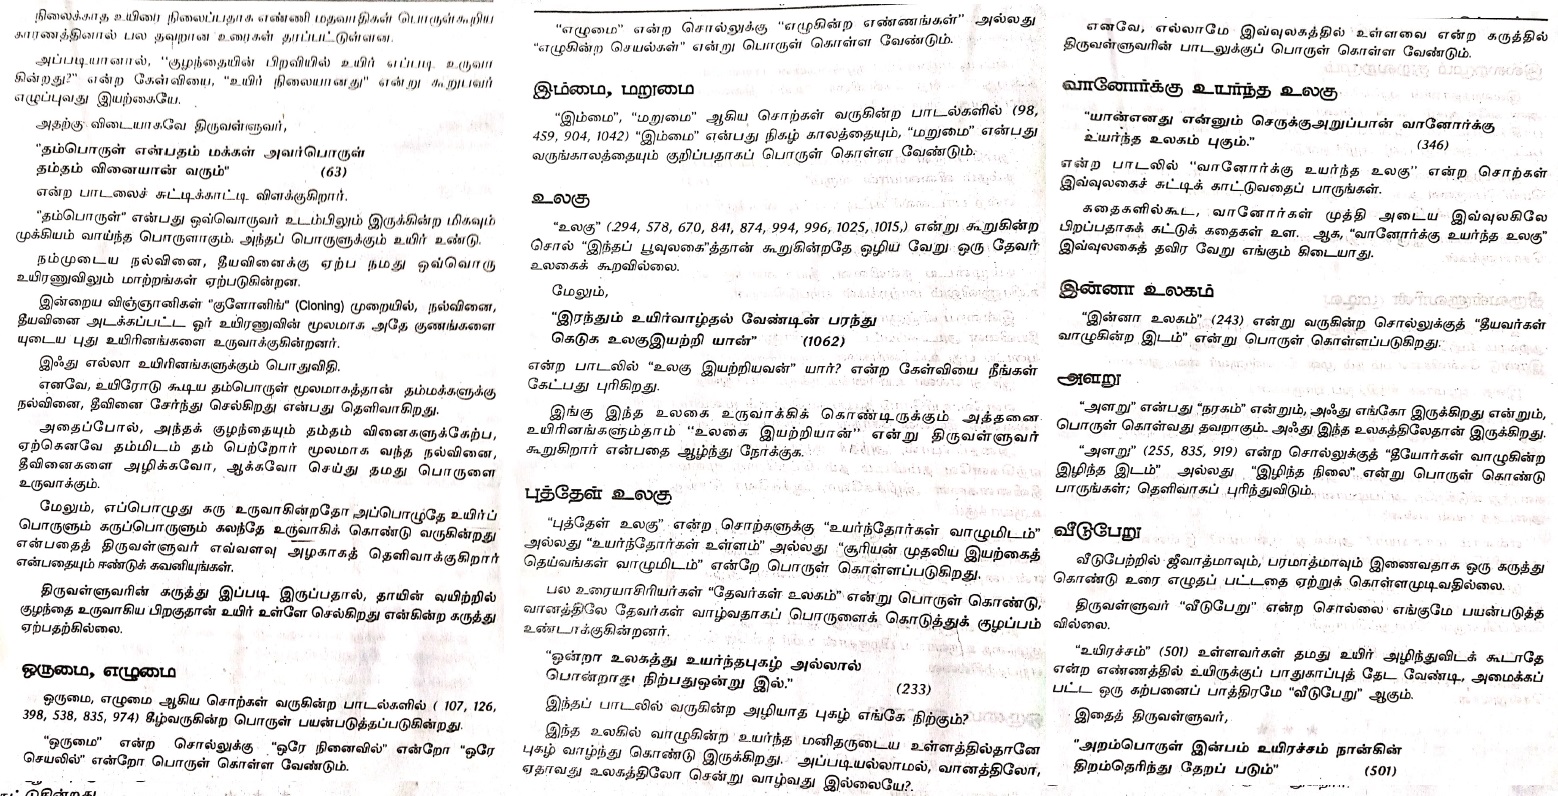 நிலைக்காத உயிரை நிலைப்பதாக எண்ணி மதவாதிகள் பொருள்கூறிய
காரணத்தினால் பல தவறான உரைகள் தரப்பட்டுள்ளன.
அப்படியானால், "குழந்தையின் பிறவியில் உயிர் எப்படி உருவா
கின்றது?" என்ற கேள்வியை, "உயிர் நிலையானது" என்று கூறுபவர்
எழுப்புவது இயற்கையே.
அதற்கு விடையாகவே திருவள்ளுவர்,
"தம்பொருள் என்பதம் மக்கள் அவர்பொருள்
தம்தம் வினையான் வரும்" (63)
என்ற பாடலைச் சுட்டிக்காட்டி விளக்குகிறார்.
"தம்பொருள்" என்பது ஒவ்வொருவர் உடம்பிலும் இருக்கின்ற மிகவும்
முக்கியம் வாய்ந்த பொருளாகும். அந்தப் பொருளுக்கும் உயிர் உண்டு.
நம்முடைய நல்வினை, தீயவினைக்கு ஏற்ப நமது ஒவ்வொரு
உயிரணுவிலும் மாற்றங்கள் ஏற்படுகின்றன.
இன்றைய விஞ்ஞானிகள் "குளோனிங்" (Cloning) முறையில், நல்வினை,
தீயவினை அடக்கப்பட்ட ஓர் உயிரணுவின் மூலமாக அதே குணங்களை
யுடைய புது உயிரினங்களை உருவாக்குகின்றனர்.
இஃது எல்லா உயிரினங்களுக்கும் பொதுவிதி.
எனவே, உயிரோடு கூடிய தம்பொருள் மூலமாகத்தான் தம்மக்களுக்கு
நல்வினை, தீவினை சேர்ந்து செல்கிறது என்பது தெளிவாகிறது.
அதைப்போல், அந்தக் குழந்தையும் தம்தம் வினைகளுக்கேற்ப,
ஏற்கெனவே தம்மிடம் தம் பெற்றோர் மூலமாக வந்த நல்வினை,
தீவினைகளை அழிக்கவோ, ஆக்கவோ செய்து தமது பொருளை
உருவாக்கும்.
மேலும், எப்பொழுது கரு உருவாகின்றதோ அப்பொழுதே உயிர்ப்
பொருளும் கருப்பொருளும் கலந்தே உருவாகிக் கொண்டு வருகின்றது
என்பதைத் திருவள்ளுவர் எவ்வளவு அழகாகத் தெளிவாக்குகிறார்
என்பதையும் ஈண்டுக் கவனியுங்கள்.
திருவள்ளுவர்ின் கருத்து இப்படி இருப்பதால், தாயின் வயிற்றில்
குழந்தை உருவாகிய பிறகுதான் உயிர் உள்ளே செல்கிறது என்கின்ற கருத்து
ஏற்பதற்கில்லை.
ஒருமை, எழுமை
ஒருமை, எழுமை ஆகிய சொற்கள் வருகின்ற பாடல்களில் ( 107, 126,
398, 538, 835, 974) கீழ்வருகின்ற பொருள் பயன்படுத்தப்படுகின்றது.
"ஒருமை" என்ற சொல்லுக்கு "ஒரே நினைவில்" என்றோ "ஒரே
செயலில்" என்றோ பொருள் கொள்ள வேண்டும்.
"எழுமை" என்ற சொல்லுக்கு "எழுகின்ற எண்ணங்கள்" அல்லது
"எழுகின்ற செயல்கள்" என்று பொருள் கொள்ள வேண்டும்.
இம்மை, மறுமை
"இம்மை", "மறுமை" ஆகிய சொற்கள் வருகின்ற பாடல்களில் (98,
459, 904, 1042) "இம்மை" என்பது நிகழ் காலத்தையும், "மறுமை" என்பது
வருங்காலத்தையும் குறிப்பதாகப் பொருள் கொள்ள வேண்டும்.
உலகு
"உலகு" (294, 578, 670, 841, 874, 994, 996, 1025, 1015,) என்று கூறுகின்ற
சொல் "இந்தப் பூவுலகை"த்தான் கூறுகின்றதே ஒழிய வேறு ஒரு தேவர்
உலகைக் கூறவில்லை.
மேலும்,
"இரந்தும் உயிர்வாழ்தல் வேண்டின் பரந்து
கெடுக உலகுஇயற்றி யான்" (1062)
என்ற பாடலில் "உலகு இயற்றியவன்" யார்? என்ற கேள்வியை நீங்கள்
கேட்பது புரிகிறது.
இங்கு இந்த உலகை உருவாக்கிக் கொண்டிருக்கும் அத்தனை
உயிரினங்களும்தாம் "உலகை இயற்றியான்" என்று திருவள்ளுவர்
கூறுகிறார் என்பதை ஆழ்ந்து நோக்குக.
புத்தேள் உலகு
"புத்தேள் உலகு" என்ற சொற்களுக்கு "உயர்ந்தோர்கள் வாழுமிடம்"
அல்லது "உயர்ந்தோர்கள் உள்ளம்" அல்லது "சூரியன் முதலிய இயற்கைத்
தெய்வங்கள் வாழுமிடம்" என்றே பொருள் கொள்ளப்படுகிறது.
பல உரையாசிரியர்கள் "தேவர்கள் உலகம்" என்று பொருள் கொண்டு,
வானத்திலே தேவர்கள் வாழ்வதாகப் பொருளைக் கொடுத்துக் குழப்பம்
உண்டாக்குகின்றனர்.
"ஒன்றா உலகத்து உயர்ந்தபுகழ் அல்லால்
பொன்றாது நிற்பதுஒன்று இல்." (233)
இந்தப் பாடலில் வருகின்ற அழியாத புகழ் எங்கே நிற்கும்?
இந்த உலகில் வாழுகின்ற உயர்ந்த மனிதருடைய உள்ளத்தில்தானே
புகழ் வாழ்ந்து கொண்டு இருக்கிறது. அப்படியல்லாமல், வானத்திலோ,
ஏதாவது உலகத்திலோ சென்று வாழ்வது இல்லையே?
எனவே, எல்லாமே இவ்வுலகத்தில் உள்ளவை என்ற கருத்தில்
திருவள்ளுவரின் பாடலுக்குப் பொருள் கொள்ள வேண்டும்.
வானோர்க்கு உயர்ந்த உலகு
"யான்எனது என்னும் செருக்குஅறுப்பான் வானோர்க்கு
உயர்ந்த உலகம் புகும்." (346)
என்ற பாடலில் "வானோர்க்கு உயர்ந்த உலகு" என்ற சொற்கள்
இவ்வுலகைச் சுட்டிக் காட்டுவதைப் பாருங்கள்.
கதைகளில்கூட, வானோர்கள் முத்தி அடைய இவ்வுலகிலே
பிறப்பதாகக் கட்டுக் கதைகள் உள. ஆக, "வானோர்க்கு உயர்ந்த உலகு"
இவ்வுலகைத் தவிர வேறு எங்கும் கிடையாது.
இன்னா உலகம்
"இன்னா உலகம்" (243) என்று வருகின்ற சொல்லுக்குத் "தீயவர்கள்
வாழுகின்ற இடம்" என்று பொருள் கொள்ளப்படுகிறது.
அளறு
"அளறு" என்பது "நரகம்" என்றும், அஃது எங்கோ இருக்கிறது என்றும்,
பொருள் கொள்வது தவறாகும். அஃது இந்த உலகத்திலேதான் இருக்கிறது.
"அளறு" (255, 835, 919) என்ற சொல்லுக்குத் "தீயோர்கள் வாழுகின்ற
இழிந்த இடம்" அல்லது "இழிந்த நிலை" என்று பொருள் கொண்டு
பாருங்கள்; தெளிவாகப் புரிந்துவிடும்.
வீடுபேறு
வீடுபேற்றில் ஜீவாத்மாவும், பரமாத்மாவும் இணைவதாக ஒரு கருத்து
கொண்டு உரை எழுதப் பட்டதை ஏற்றுக் கொள்ளமுடிவதில்லை.
திருவள்ளுவர் "வீடுபேறு" என்ற சொல்லை எங்குமே பயன்படுத்த
வில்லை.
"உயிரச்சம்" (501) உள்ளவர்கள் தமது உயிர் அழிந்துவிடக் கூடாதே
என்ற எண்ணத்தில் உயிருக்குப் பாதுகாப்புத் தேட வேண்டி, அமைக்கப்
பட்ட ஒரு கற்பனைப் பாத்திரமே "வீடுபேறு" ஆகும்.
இதைத் திருவள்ளுவர்,
"அறம்பொருள் இன்பம் உயிரச்சம் நான்கின்
திறம்தெரிந்து தேறப் படும்" (501)